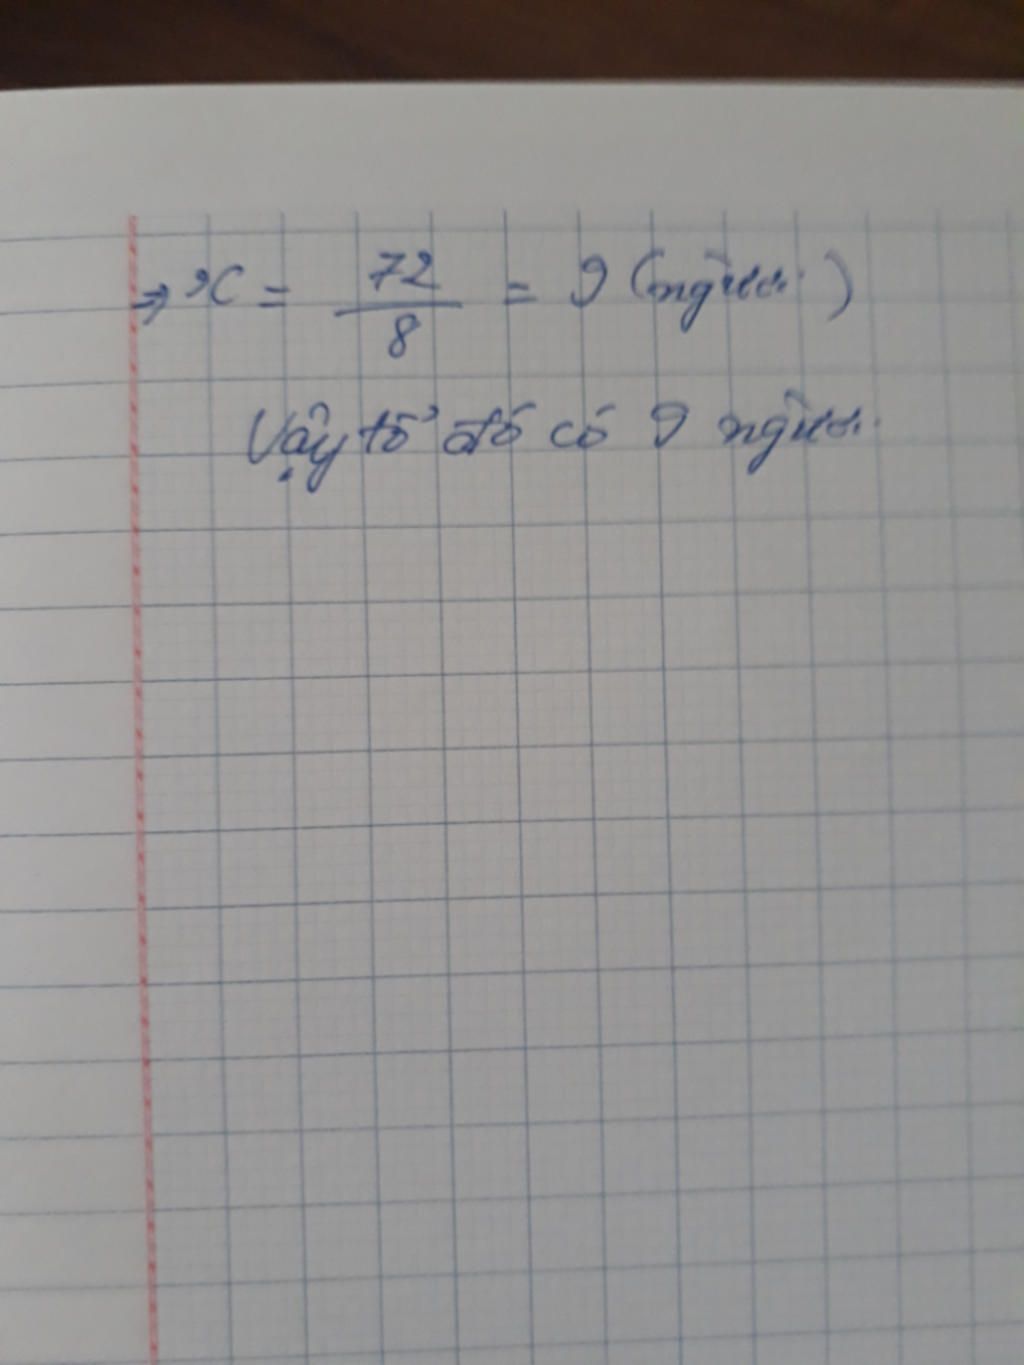 ⇒ x = 72/8 = 9 (người)
Vậy tổ đó có 9 người.